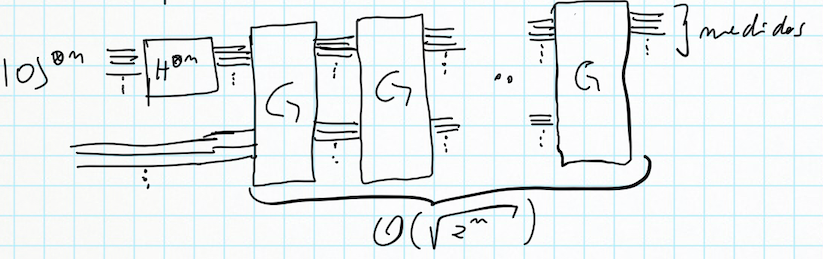 |0⟩⊗n H⊗n G G .. G } medidos
O(√2ⁿ)